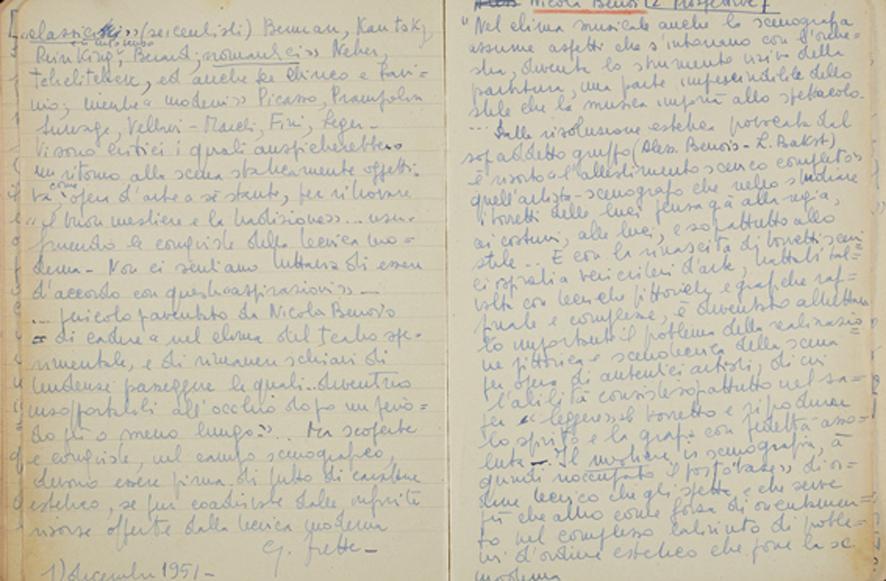 "classici" (seicentisti) Berman, Kautsky
Reinking, Berard; romantici» Neher,
Tchelitchew, ed anche De Chirico e Savi=
nio; mentre moderni» Picasso, Prampolini
Survage, Vellani-Marchi, Fini, Leger.
Vi sono critici i quali auspicherebbero
un ritorno alla scena staticamente oggetti=
va come opera d'arte a sè stante, per ritrovare
"il buon mestiere e la tradizione»... usu=
fruendo le conquiste della tecnica mo=
derna - Non ci sentiamo tuttavia di essere
d'accordo con queste aspirazioni»...
... pericolo paventato da Nicola Benois
= di cadere nel clima del teatro spe=
rimentale, e di rimanere schiavi di
tendenze passeggere le quali.. diventino
insopportabili all'occhio dopo un perio=
do più o meno lungo"... Ma scoperte
e conquiste, nel campo scenografico,
devono essere prima di tutto di carattere
estetico, se pur coadiuvate dalle infinite
risorse offerte dalla tecnica moderna
G. Frette -
1) decembre 1951 -
Nicola Benois Prospettive
"Nel clima musicale anche la scenografia
assume aspetti che s'intonano con l'orche=
stra, diventa lo strumento visivo della
partitura, una parte imprescindibile dello
stile che la musica imprime allo spettacolo.
... Dalla rivoluzione estetica provocata dal
sopraddetto gruppo (Aless. Benois - L. Bakst)
è risorto l'allestimento scenico completo»
quell'artista-scenografo che nello studiare
i bozzetti delle luci pensa già alla regia,
ai costumi, alle luci, e soprattutto allo
stile... E con la rinascita di bozzetti sceni
ci ispirati a veri criteri d'arte, trattati tal=
volta con tecniche pittoriche e grafiche raf=
finate e complesse, è diventato altrettan
to importante il problema della realizzazio
ne pittorica e scenotecnica della scena
per opera di autentici artisti, di cui
l'abilità consiste soprattutto nel sa=
per "leggere» il bozzetto e riprodurre
lo spirito e la grafia con fedeltà asso=
luta - Il mestiere, in scenografia, à
quindi rioccupato il posto "base» di or=
dine tecnico che gli spetta e che serve
più che altro come forza di orientamen=
to nel complesso labirinto di proble=
mi d'ordine estetico che pone la sc.
moderna